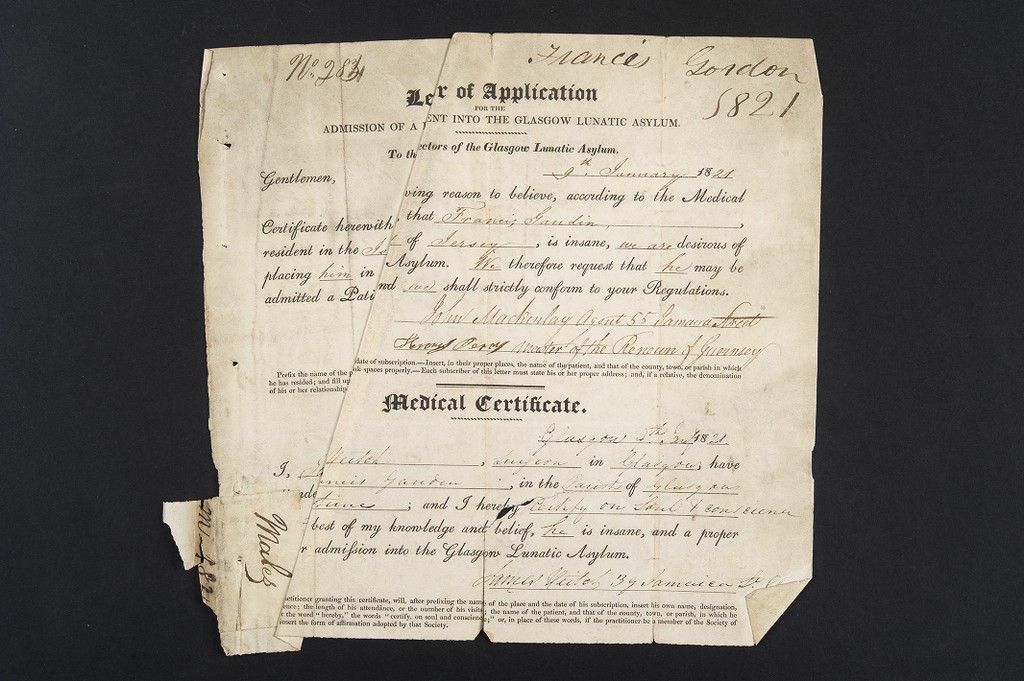 No. 284
Francis Gordon
1821
Le r of Application
FOR THE
ADMISSION OF A ENT INTO THE GLASGOW LUNATIC ASYLUM.
To th ectors of the Glasgow Lunatic Asylum.
9th. January 1821
Gentlemen,
ving reason to believe, according to the Medical
Certificate herewith, that Francis Gaudin,
resident in the of Jersey, is insane, we are desirous of
placing him in Asylum. We therefore request that he may be
admitted a Pati nd we shall strictly conform to your Regulations.
John Mackinlay Agent 55 Jamaica Street
Peroy Master of the Renown of Guernsey
date of subscription.—Insert, in their proper places, the name of the patient, and that of the county, town, or parish in which
Prefix the name of the p nk spaces properly.—Each subscriber of this letter must state his or her proper address; and, if a relative, the denomination
he has resided; and fill up
of his or her relationship
Medical Certificate.
Glasgow 1821
I, Veitch, Surgeon in Glasgow; have
ncis Gauden, in the Parish of Glasgow
nde
; and I hereby Certify on Soul & conscience
best of my knowledge and belief, he is insane, and a proper
r admission into the Glasgow Lunatic Asylum.
James Veitch 39 Jamaica St.
Males
actitioner granting this certificate, will, after prefixing the name of the place and the date of his subscription, insert his own name, designation,
ence; the length of his attendance, or the number of his visits; the name of the patient, and that of the county, town, or parish, in which he
the word "hereby," the words "certify, on soul and conscience;" or, in place of these words, if the practitioner be a member of the Society of
insert the form of affirmation adopted by that Society.